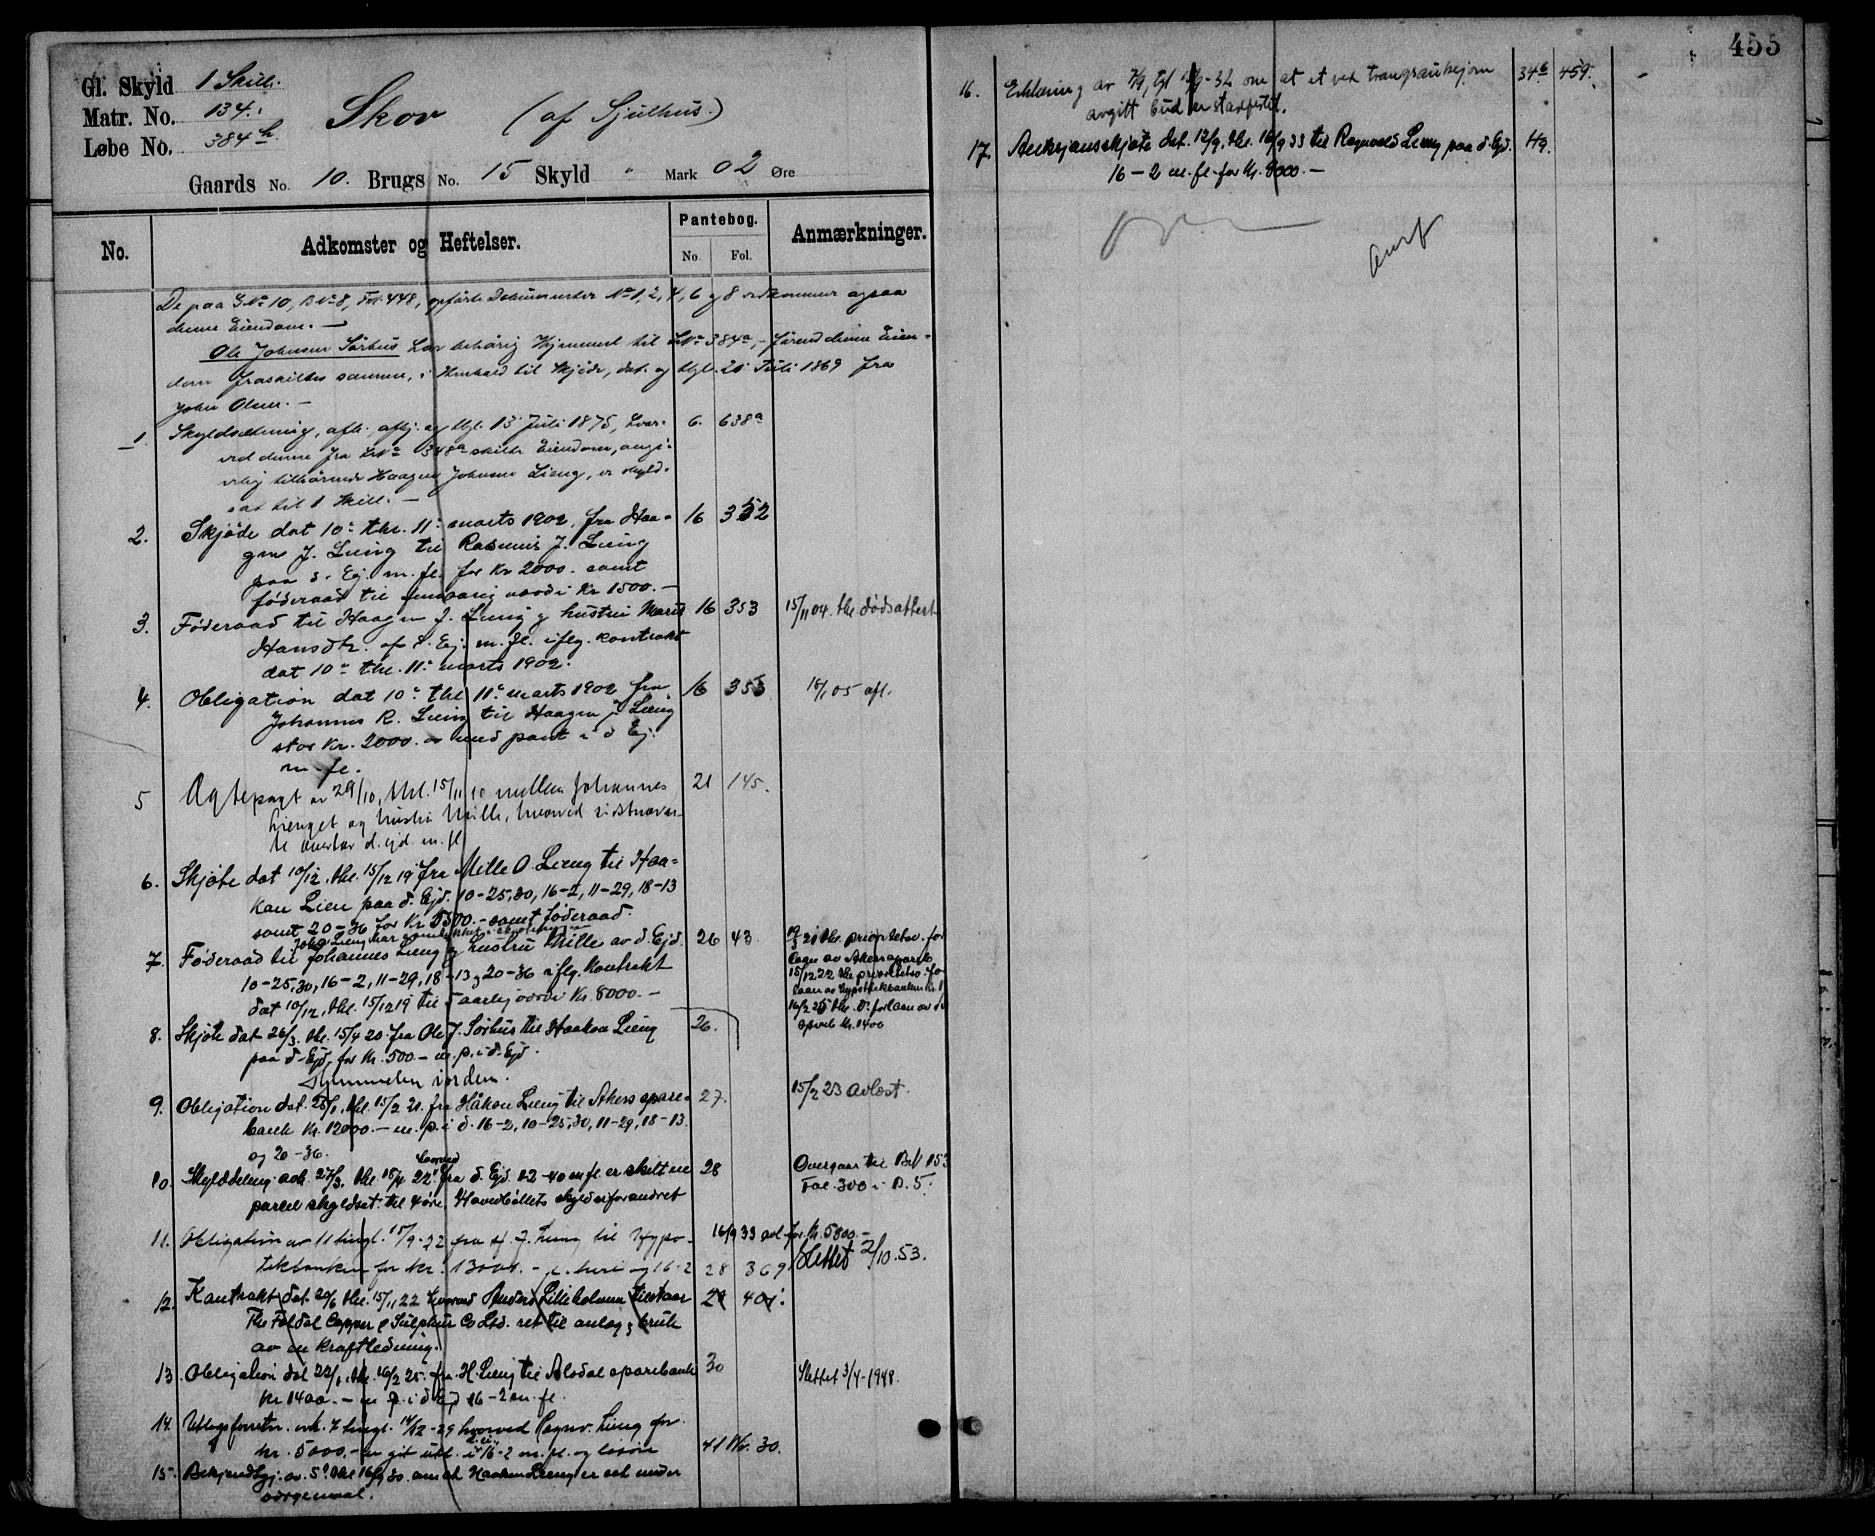 455
Gl. Skyld 1 Skill.
Matr. No. 134.
Løbe No. 384 h
Skov (af Sjulhus.)
Gaards No. 10. Brugs No. 15 Skyld " Mark 02 Øre
No. Adkomster og Heftelser. Pantebog. No. Fol. Anmærkninger.
De paa GNo 10, BNo 8, Fol. 448, opførte Dokumenter No 1, 2, 4, 6 og 8 vedkommer ogsaa
denne Eiendom. —
Ole Johnsen Sørhus har behørig Hjemmel til LNo 384a, - førend denne Eien-
dom fraskiltes samme, i Henhold til Skjøde, dat. og thgl. 20 Juli 1869 fra
John Olsen. —
1. Skyldsætning, afh. afhj. og thgl. 13 Juli 1875, hvor- 6. 638a
ved denne fra LNo 348a skilte Eiendom, angi-
velig tilhørende Haagen Johnsen Lieng, er skyld-
sat til 1 Skill. —
2. Skjøde dat 10. thl. 11. marts 1902, fra Haa- 16 352
gen J. Lieng til Rasmus J. Lieng
paa d. Ej. m. fl. for Kr 2000. samt
føderaad til femaarig værdi Kr 1500. —
3. Føderaad til Haagen J. Lieng og hustru Marit 16 353 15/11 04. thl. dødsattest
Hansdtr. af d. Ej. m. fl. iflg. kontrakt
dat 10. thl. 11. marts 1902.
4. Obligation dat 10. thl. 11. marts 1902 fra 16 355 16/1 05 afl.
Johannes R. Lieng til Haagen J. Lieng
stor Kr. 2000. — med pant i d Ej.
m. fl.
5 Agtepagt av 29/10, thl. 15/11 10 mellem Johannes 21 145.
Lienget og hustru Mille, hvorved sidstnævn-
te overtar d. ejd. m. fl
6. Skjøte dat 10/12. thl. 15/12 19 fra Mille O. Lieng til Haa-
kon Lien paa d. Ejd. 10-25,30, 16-2, 11-29, 18-13
samt 20-36 for Kr 5500.- samt føderaad.
7. Føderaad til Johannes Lieng og hustru Mille av d. Ejd. 26 43.
10-25,30, 16-2, 11-29, 18-13 og 20-36 iflg. Kontrakt
dat 10/12. thl. 15/12 19 til 5 aarlig værdi Kr. 8000. —
15/12 22 thl. prioritetsv. for
Laan av Hypothekbanken
16/2 25 thl. Do for laan av
spareb. Kr. 1400
8. Skjøte dat 26/3. thl. 15/4 20. fra Ole J. Sørhus til Haakon Lieng 26.
paa d. Ejd. for Kr. 500.- m. p. i d. Ejd.
Hjemmelen i orden.
9. Obligation dat. 28/1. thl. 15/2 21. fra Håkon Lieng til Akers spare- 27. 15/2 23 avlæst.
bank Kr. 12000. — m. p. i d. 16-2, 10-25,30, 11-29, 18-13
og 20-36.
10. Skylddeling avh. 27/3. thl. 15/4 22. hvorved fra d. Ejd. 12-40 m fl er skilt en 28 Overgaar til BN 153
parcel skyldsat til 4 øre. Hovedbøllets skyld er forandret Fol. 300 i P. 5.
11. Obligation av 11 tingl. 15/9-22 fra H. J. Lieng til Hypo- 16/9 33 avl for Kr. 5800.-
tekbanken for kr. 13000. — p. i heri og 16-2 28 369 Slettet 2/10.53.
12. Kontrakt dat. 20/6 thl. 15/11 22 hvorved Anders Lilleholmen tilstaar 29 401.
The Foldal Copper & Sulphur Co Ltd. ret til anlæg og bruk
av en kraftledning.
13. Obligation dat 22/1. thl. 16/2 25. fra H. Lieng til Alvdal sparebank 30 Slettet 3/4-1948.
Kr 1400. — m p. i d Ejd 16-2 m. fl.
14. Utlægsforretn. avh. 7 tingl. 14/12-29 hvorved Ragnv. Lieng for
kr. 5000.- er git utl. i d. ei. 16-2 m. fl. og løsøre 41 Hv. 30.
15. Bekjendtgj. av 5. thl 16/9 30. om at Haakon Lieng er sat under
værgemaal.
16. Erklæring av 7/9, tgl 15/9-32 om at et ved tvangsauksjon 34b 459.
avgitt bud er stadfestet.
17. Auksjonsskjøte dat. 12/9. thl. 16/9 33 til Ragnvald Lieng paa d. Ejd. Hg.
16-2 m. fl. for Kr. 8000. —